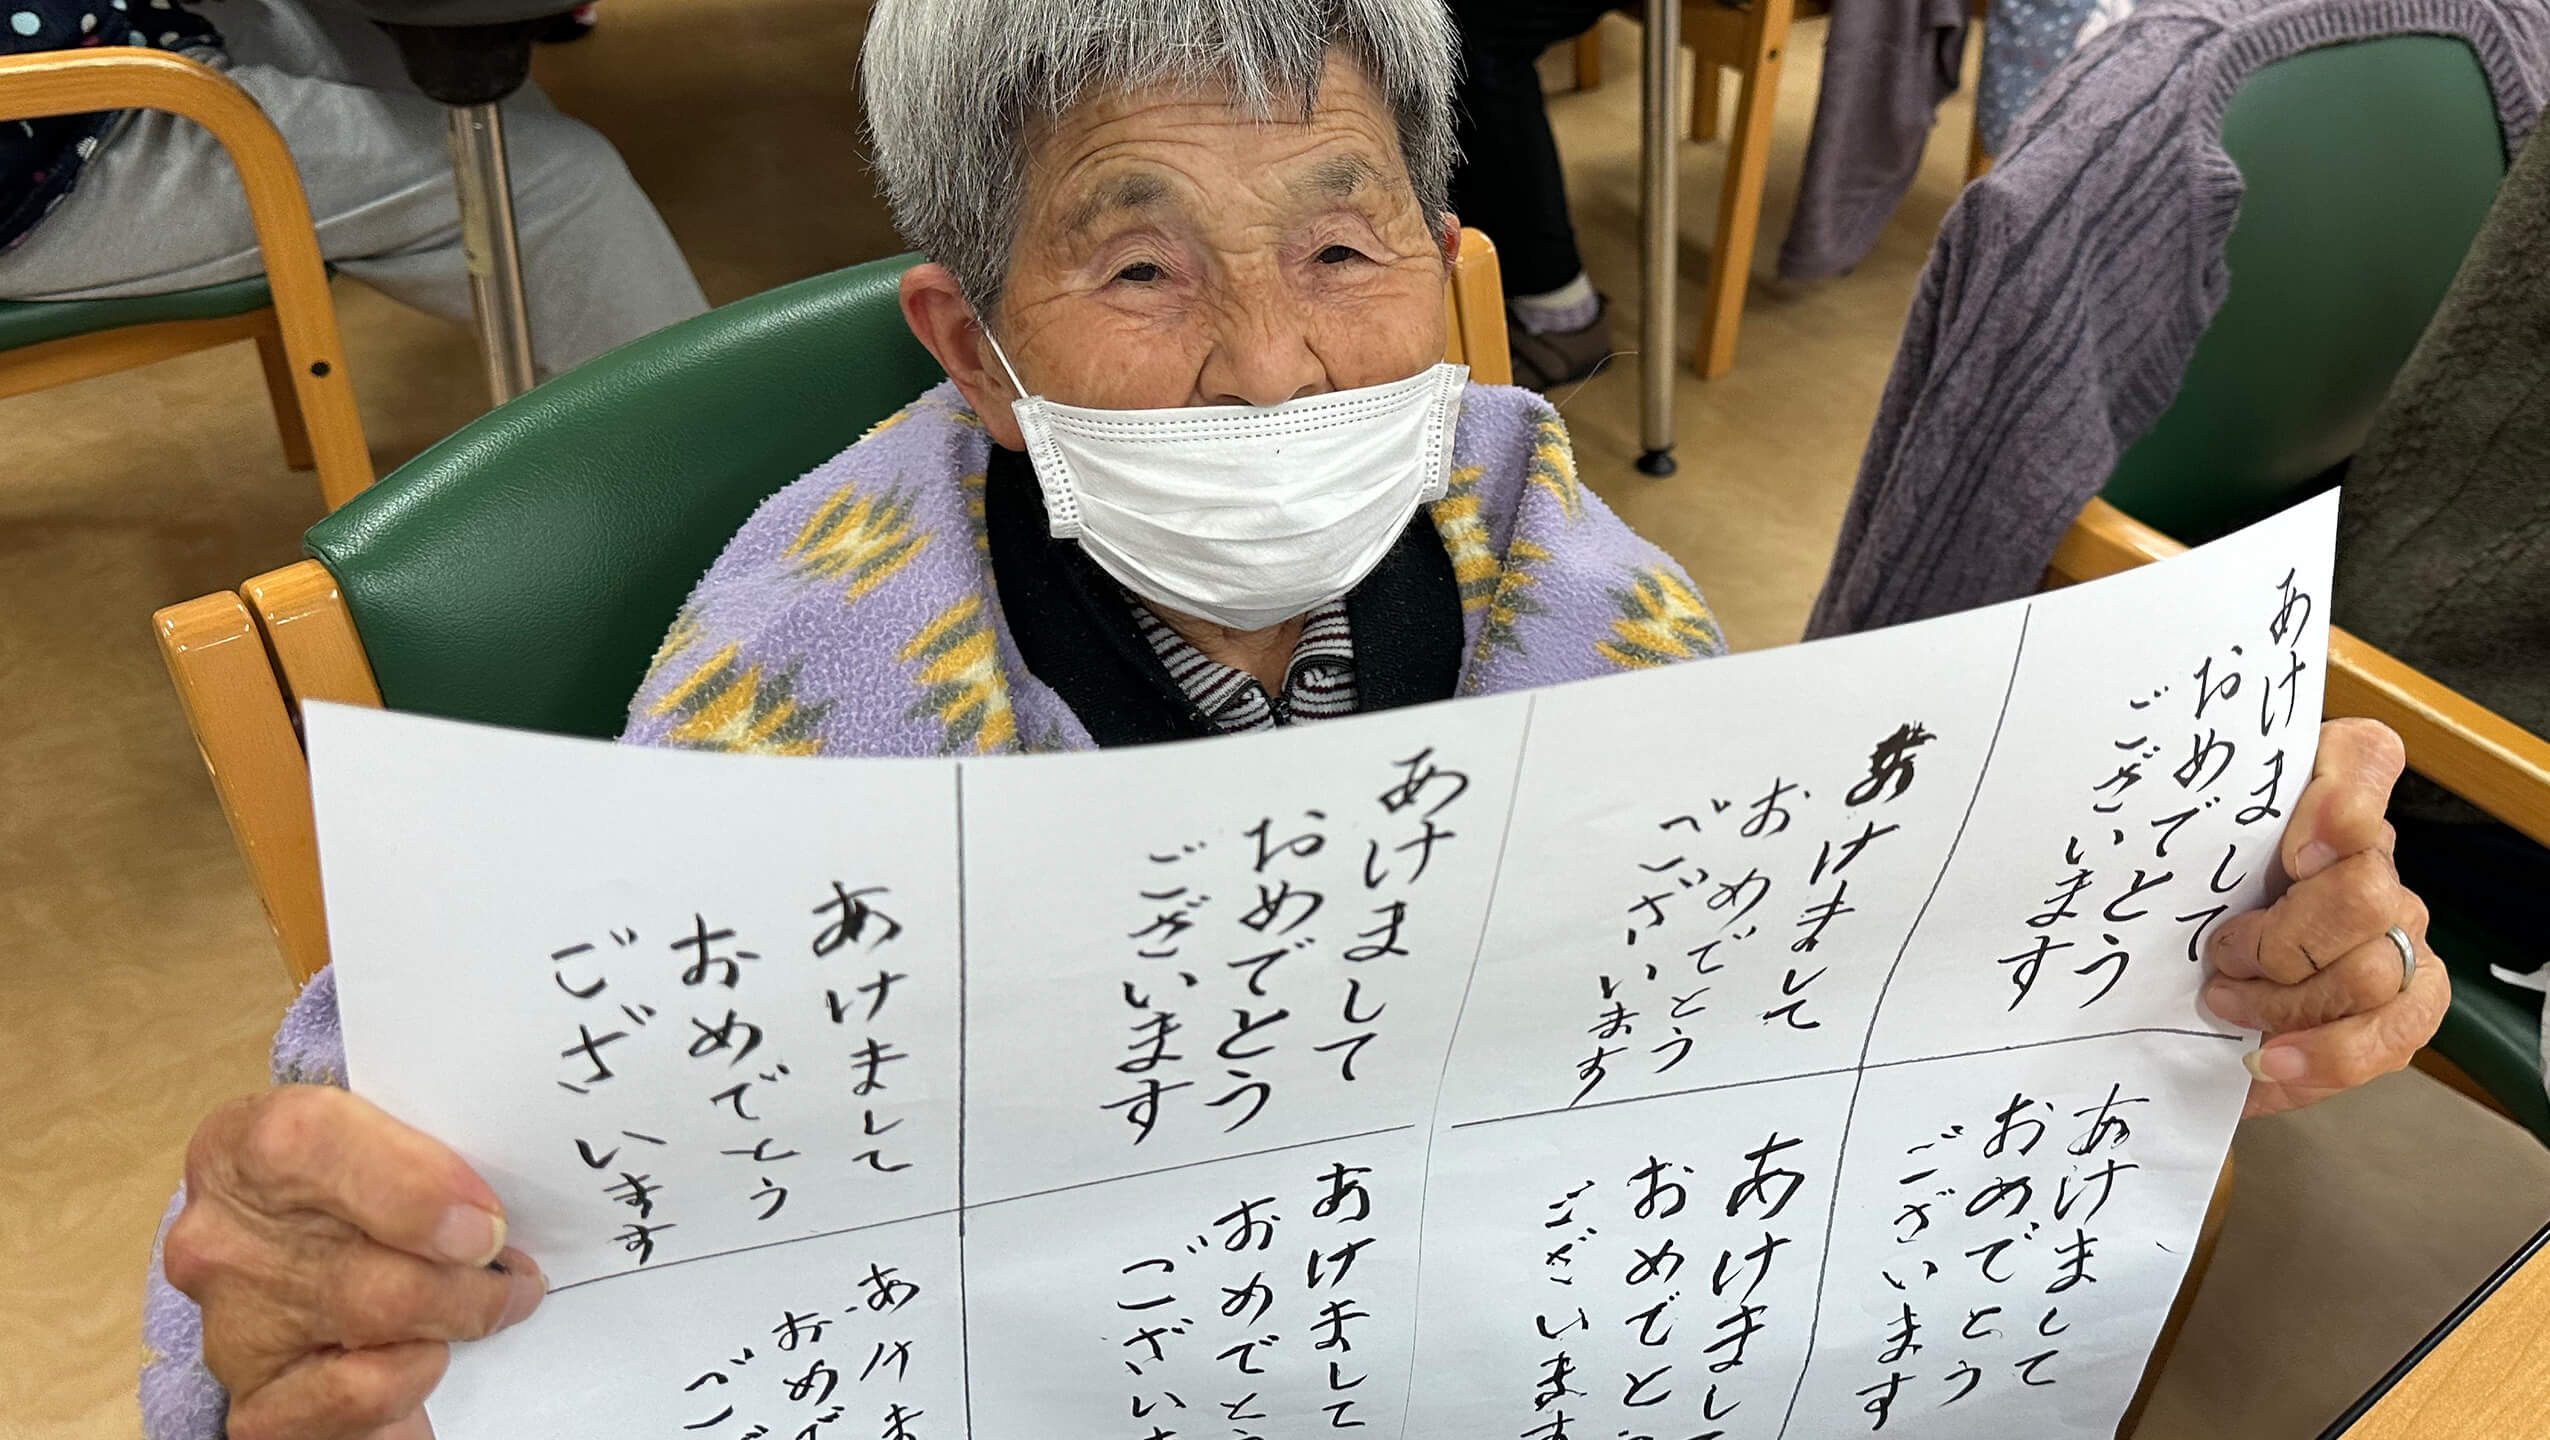 あけまして
おめでとう
ございます
あけまして
おめでとう
ございます
あけまして
おめでとう
ございます
あけまして
おめでとう
ございます
あけまして
おめでとう
ございます
あけまして
おめでと
ございます
あけまして
おめでと
ございま
あけま
おめで
ござ